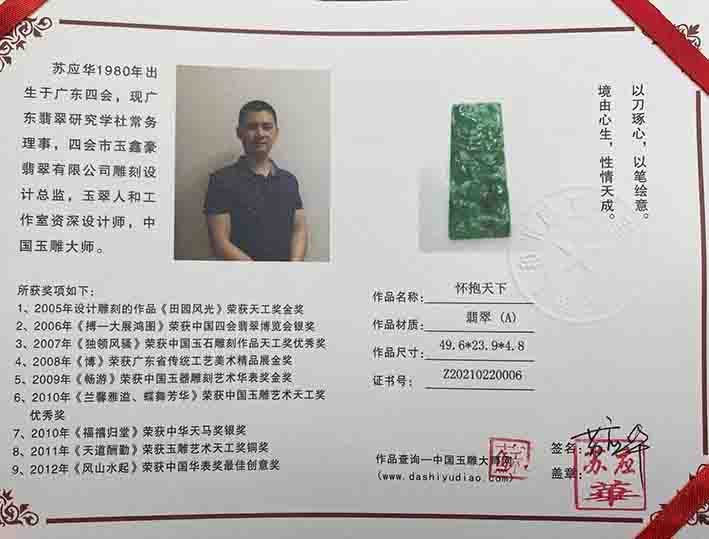 苏应华1980年出
生于广东四会，现广
东翡翠研究学社常务
理事，四会市玉鑫豪
翡翠有限公司雕刻设
计总监，玉翠人和工
作室资深设计师，中
国玉雕大师。
以刀琢心，以笔绘意。
境由心生，性情天成。
所获奖项如下：
1、2005年设计雕刻的作品《田园风光》荣获天工奖金奖
2、2006年《搏一大展鸿图》荣获中国四会翡翠博览会银奖
3、2007年《独领风骚》荣获中国玉石雕刻作品天工奖优秀奖
4、2008年《博》荣获广东省传统工艺美术精品展金奖
5、2009年《畅游》荣获中国玉器雕刻艺术华表奖金奖
6、2010年《兰馨雅溢、蝶舞芳华》荣获中国玉雕艺术天工奖
优秀奖
7、2010年《福禧归堂》荣获中华天马奖银奖
8、2011年《天道酬勤》荣获玉雕艺术天工奖铜奖
9、2012年《风山水起》荣获中国华表奖最佳创意奖
作品名称：怀抱天下
作品材质：翡翠（A）
作品尺寸：49.6*23.9*4.8
证书号：Z20210220006
作品查询—中国玉雕大师网
(www.dashiyudiao.com)
签名：苏应华
盖章：苏应華